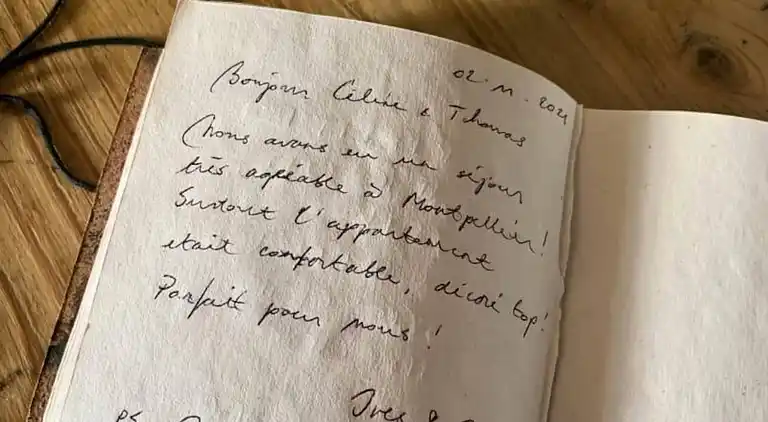 02.11.2021
Bonjour Céline & Thomas
Nous avons eu un séjour
très agréable à Montpellier!
Surtout l'appartement
était confortable, décoré top!
Parfait pour nous!
Yves &
PS